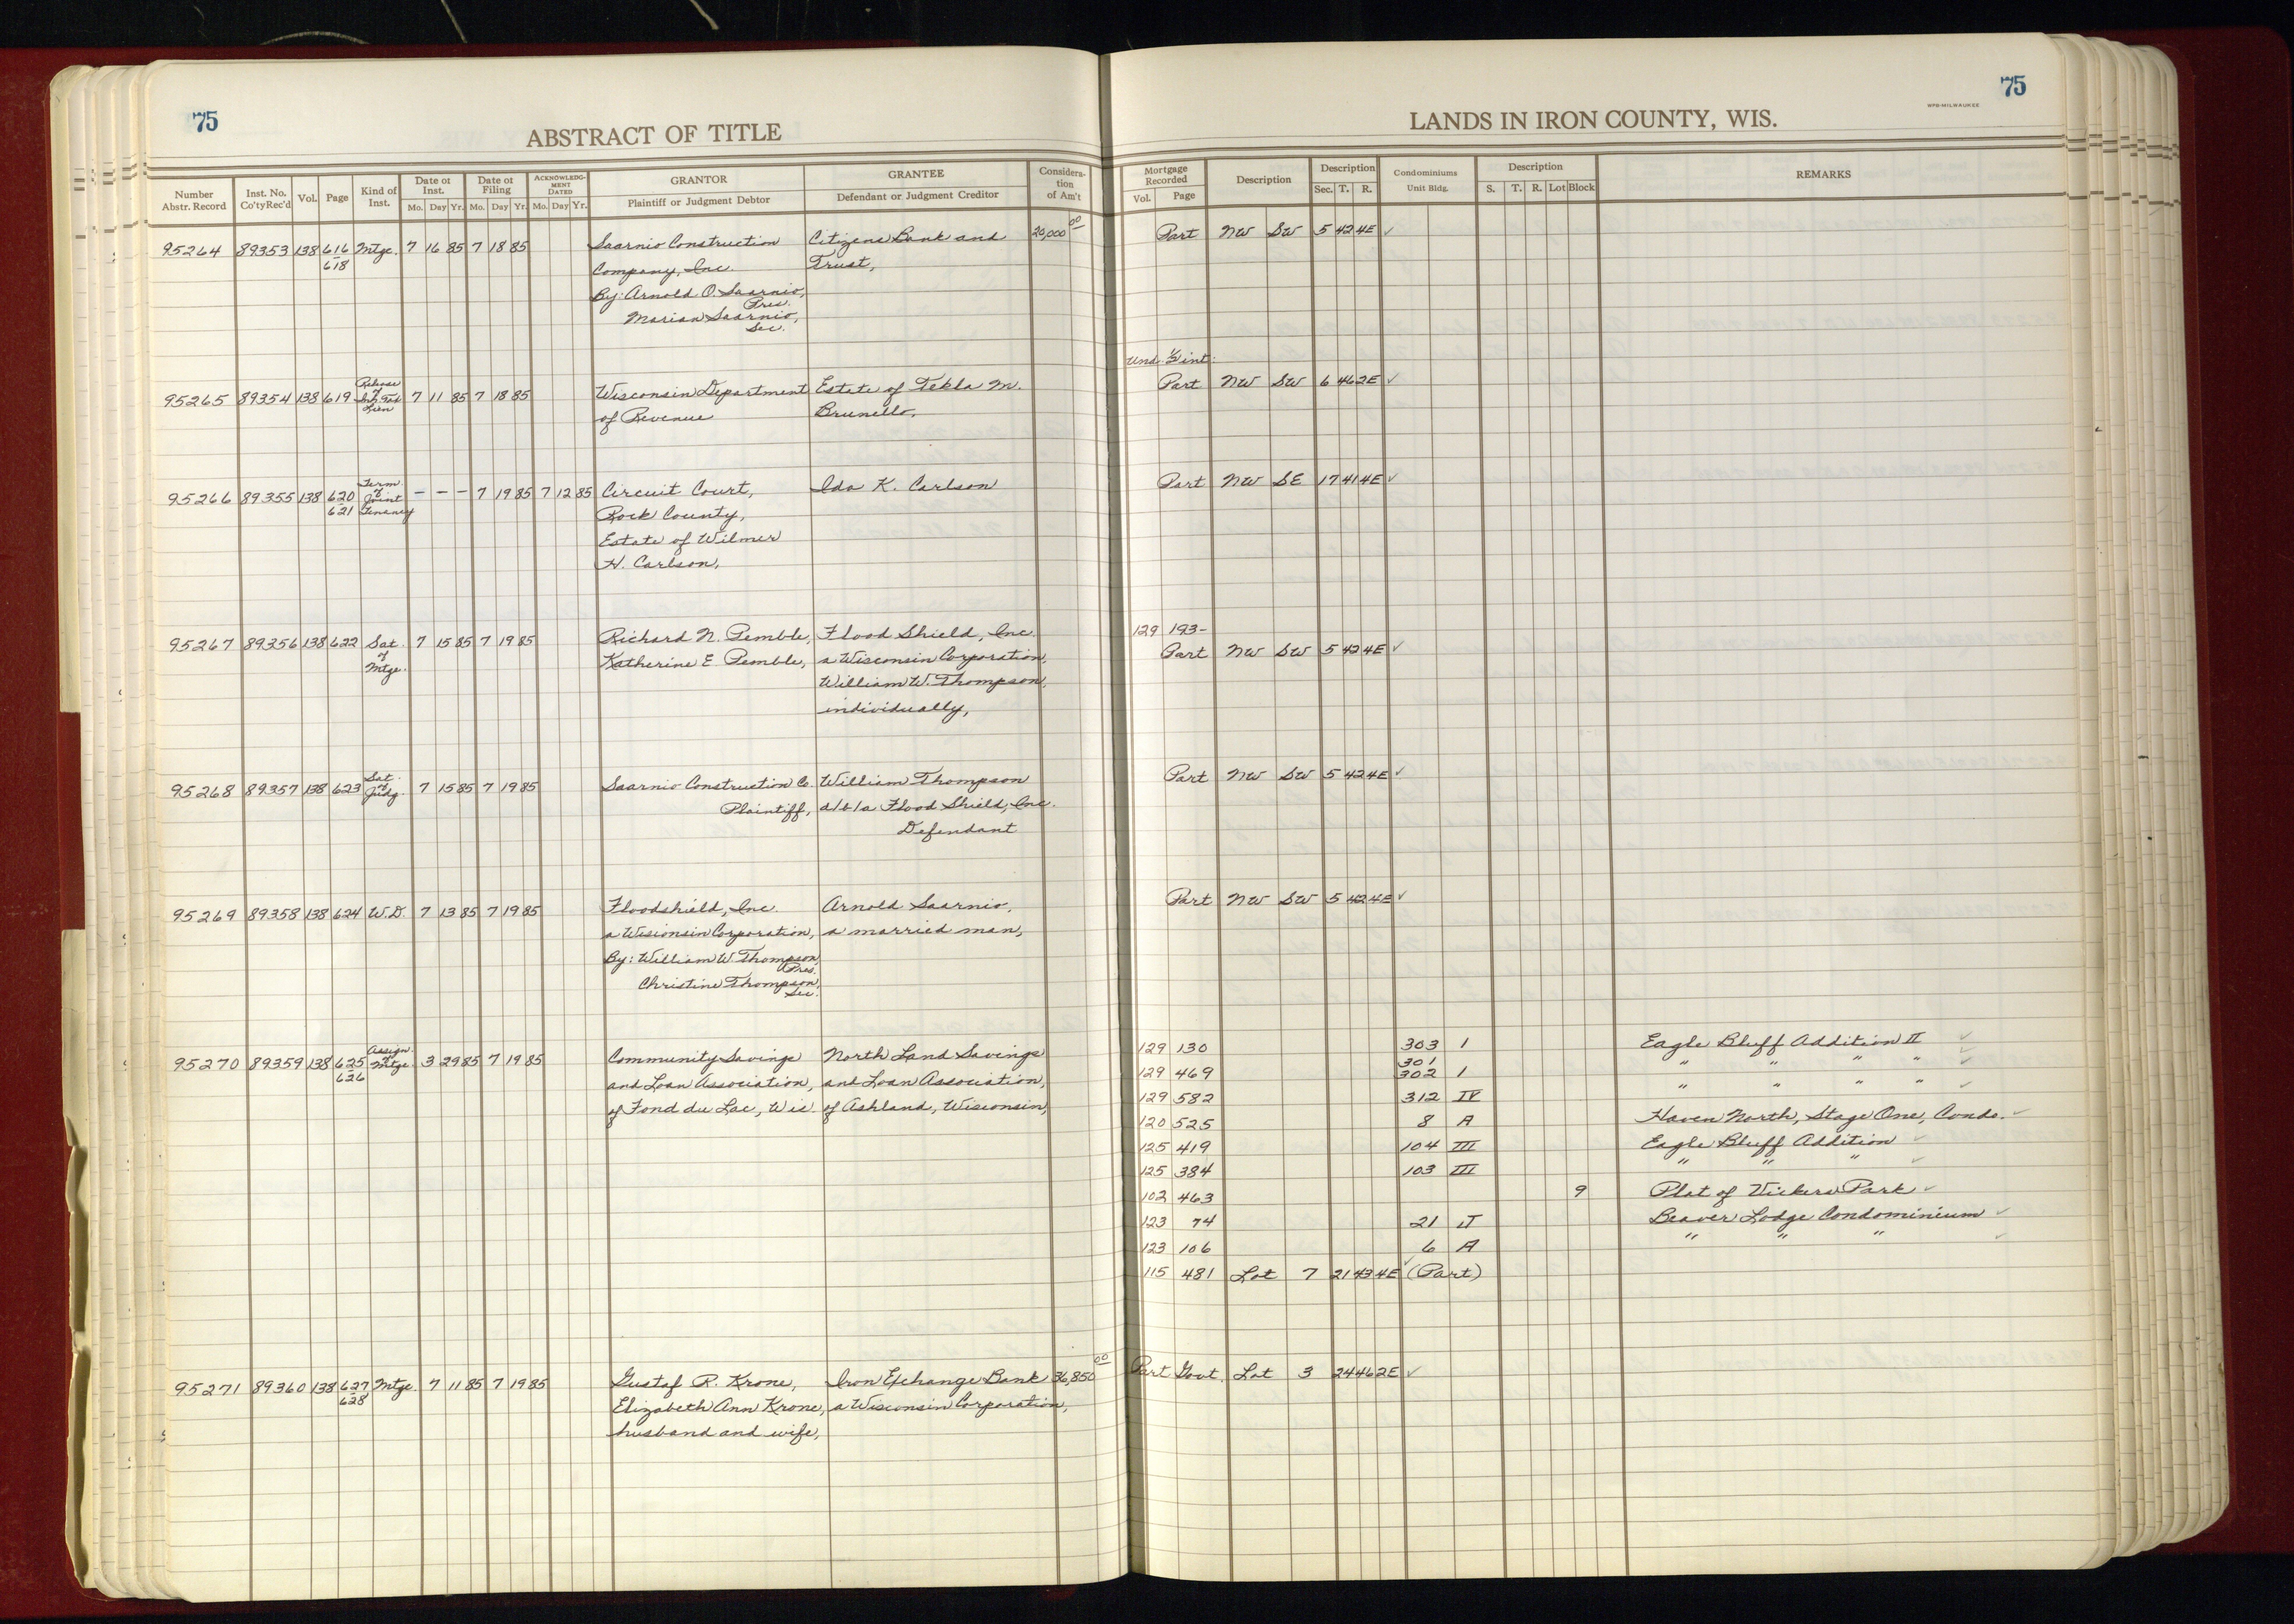 75
ABSTRACT OF TITLE
Number Abstr. Record | Inst. No. Co'ty Rec'd | Vol. | Page | Kind of Inst. | Date of Inst. Mo. Day Yr. | Date of Filing Mo. Day Yr. | ACKNOWLEDGMENT DATED Mo. Day Yr. | GRANTOR Plaintiff or Judgment Debtor | GRANTEE Defendant or Judgment Creditor | Consideration of Am't
95264 89353 138 616-618 Mtge. 7 16 85 7 18 85 Saarnio Construction Citizens Bank and 20,000 00
Company, Inc. Trust,
By: Arnold O. Saarnio, Pres.
Marian Saarnio, Sec.
95265 89354 138 619 Release of Tax Lien 7 11 85 7 18 85 Wisconsin Department Estate of Tekla M.
of Revenue Brunello,
95266 89355 138 620 621 Term. of Joint Tenancy - - - 7 19 85 7 12 85 Circuit Court, Ida K. Carlson
Rock County,
Estate of Wilmer
H. Carlson,
95267 89356 138 622 Sat. of Mtge. 7 15 85 7 19 85 Richard N. Pemble, Flood Shield, Inc.
Katherine E. Pemble, a Wisconsin Corporation,
William W. Thompson,
individually,
95268 89357 138 623 Sat. of Judg. 7 15 85 7 19 85 Saarnio Construction Co. William Thompson
Plaintiff, d/b/a Flood Shield, Inc.
Defendant
95269 89358 138 624 W.D. 7 13 85 7 19 85 Floodshield, Inc. Arnold Saarnio,
a Wisconsin Corporation, a married man,
By: William W. Thompson, Pres.
Christine Thompson, Sec.
95270 89359 138 625-626 Assign. of Mtge. 3 29 85 7 19 85 Community Savings North Land Savings
and Loan Association, and Loan Association,
of Fond du Lac, Wis. of Ashland, Wisconsin,
95271 89360 138 627-628 Mtge. 7 11 85 7 19 85 Gustaf R. Krone, Iron Exchange Bank 36,850 00
Elizabeth Ann Krone, a Wisconsin Corporation,
husband and wife,
75
WPB-MILWAUKEE
LANDS IN IRON COUNTY, WIS.
Mortgage Recorded Vol. Page | Description | Description Sec. T. R. | Condominiums Unit Bldg. | Description S. T. R. Lot Block | REMARKS
Part NW SW 5 42 4E ✓
Und. ½ int:
Part NW SW 6 46 2E ✓
Part NW SE 17 41 4E ✓
129 193-
Part NW SW 5 42 4E ✓
Part NW SW 5 42 4E ✓
Part NW SW 5 42 4E ✓
129 130 303 I Eagle Bluff Addition II ✓
301 " " " " ✓
129 469 302 I
129 582 312 IV " " " " ✓
120 525 8 A Haven North, Stage One, Condo. ✓
125 419 104 III Eagle Bluff Addition ✓
125 384 103 III " " " ✓
102 463 9 Plat of Vickers Park ✓
123 74 21 Beaver Lodge Condominium ✓
123 106 6 A " " " ✓
115 481 Lot 7 21 43 4E (Part) ✓
Part Govt. Lot 3 24 46 2E ✓